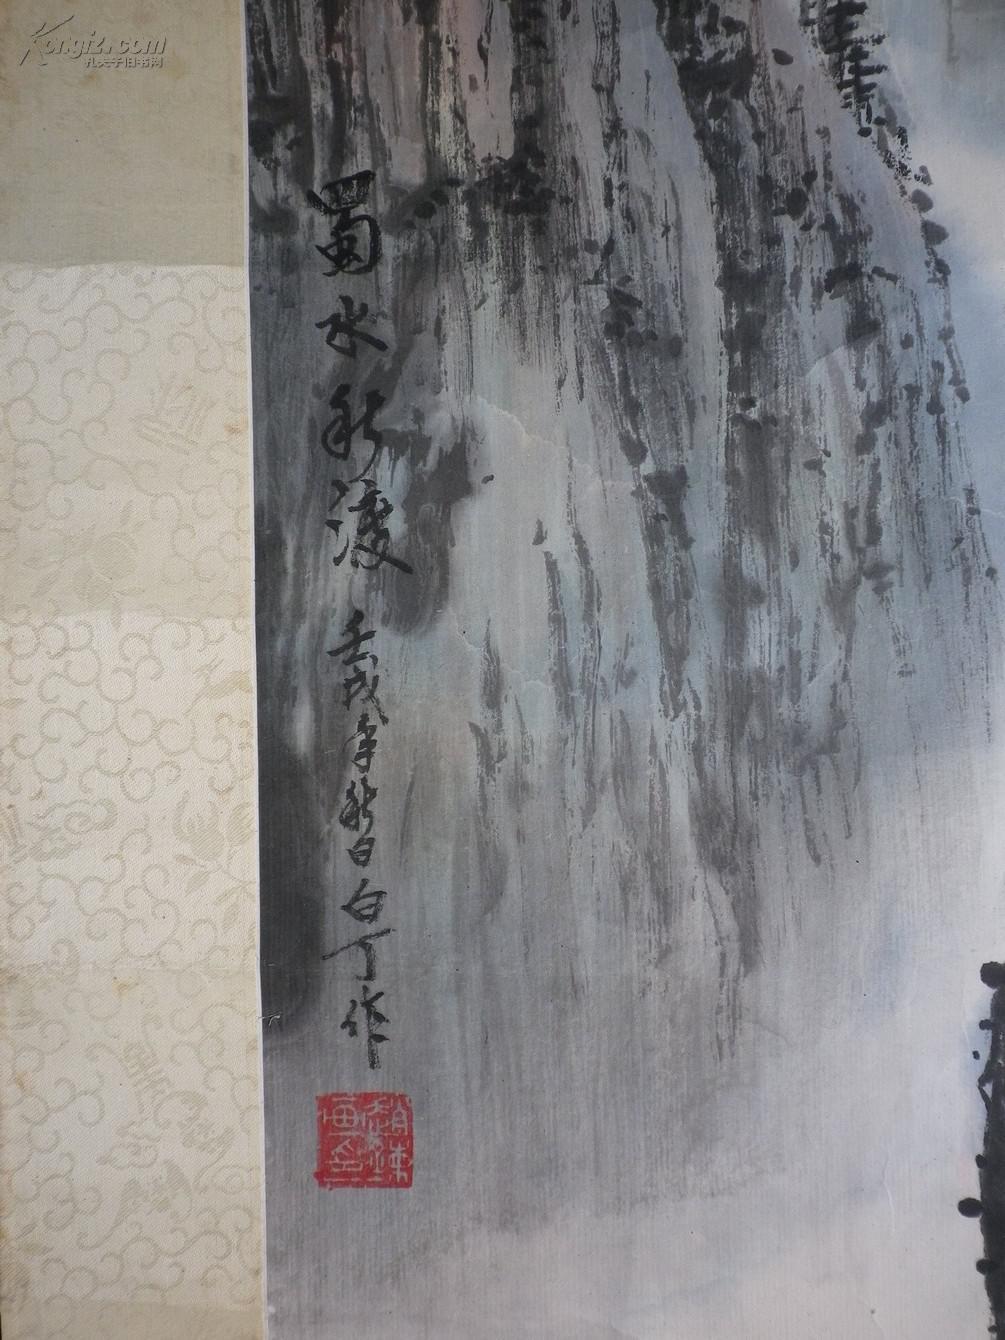 Kongfz.com
孔夫子旧书网
蜀水秋渡 壬戌年秋日白丁作